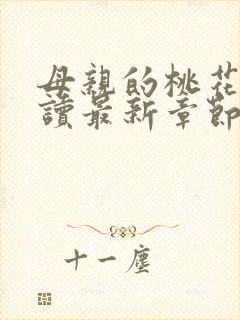 母親的桃花
讀最新章節
十一塵